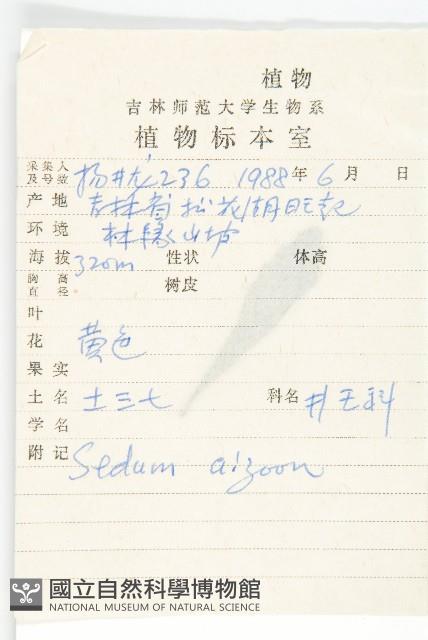 植物
吉林师范大学生物系
植物标本室
采集人及号数 杨井龙236 1988年6月 日
产地 吉林省松花湖
环境 林缘山坡
海拔 320m 性状 体高
胸高直径 树皮
叶
花 黄色
果实
土名 土三七 科名 井王科
学名
附记 Sedum aizoon
國立自然科學博物館
NATIONAL MUSEUM OF NATURAL SCIENCE